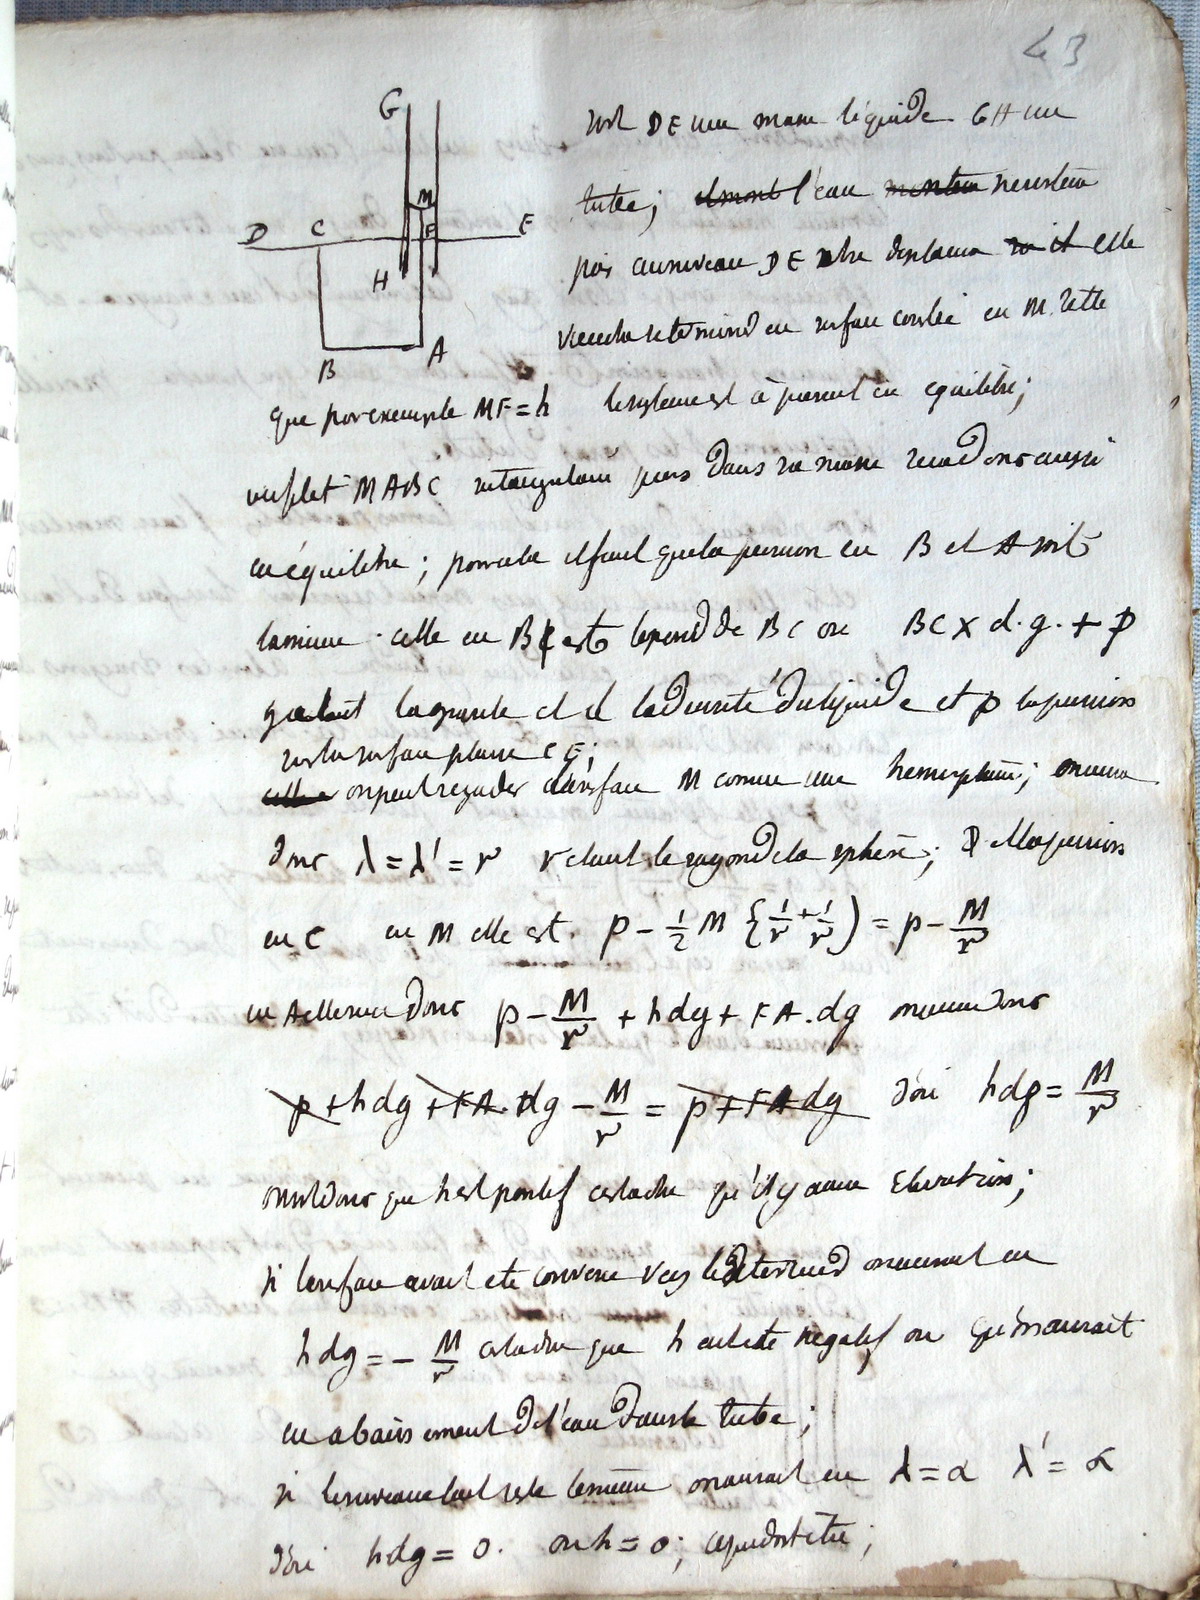 43
G
M
D C F E
H
B A
soit DE une masse liquide GH un
tube; il mont l'eau montera ne restera
pas au niveau DE elle
se termine en surface courbe en M telle
que par exemple MF = h le systeme est à present en equilibre;
un filet MABC rectangulaire pris dans sa masse sera donc aussi
en équilibre; pour cela il faut que la pression en B et A soit
la meme. celle en B est le poid de BC ou BC x d.g. + p
g etant la gravite et d la densité du liquide et p la pression
sur la surface plane CE;
on peut regarder la surface M comme une hemisphere; on aura
donc λ = λ' = r r etant le rayon de la sphere; p etant la pression
en C en M elle est. p - 1/2 M {1/r + 1/r) = p - M/r
en A elle sera donc p - M/r + hdg + FA.dg on aura donc
p + hdg + FA.dg - M/r = p + FA dg d'où hdg = M/r
on voit donc que h est positif cest a dire qu'il y a une Elevation;
si la surface avait ete convexe vers l'exterieur on aurait eu
hdg = - M/r cest a dire que h eut ete negatif ou qu'on aurait
eu abaissement de l'eau dans le tube;
si le niveau etait reste le meme on aurait eu λ = α λ' = α
d'où hdg = 0. ou h = 0; ce qui doit etre;